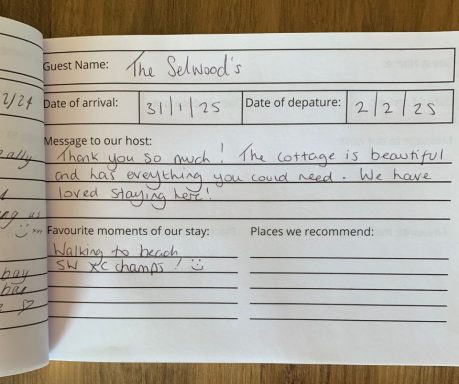 Guest Name: The Selwood's
2/24 Date of arrival: 31/1/25 Date of depature: 2/2/25
Message to our host:
Thank you so much! The cottage is beautiful
and has everything you could need. We have
loved staying here!
Favourite moments of our stay: Places we recommend:
Walking to beach
SW XC champs! :)
bay